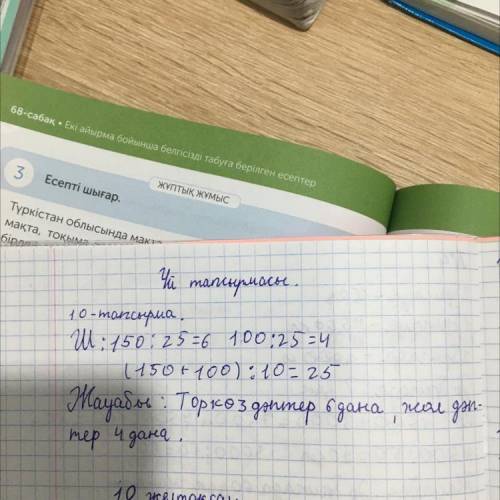 68-сабақ • Екі айырма бойынша белгісізді табуға берілген есептер
3
Есепті шығар.
ЖҰПТЫҚ ЖҰМЫС
Түркістан облысында мақта
мақта, тоқыма
Үй тапсырмасы.
10-тапсырма.
Ш: 150:25=6 100:25=4
(150+100):10=25
Жауабы: Торкөз дәптер 6 дана, жол дәп-
тер 4 дана.
10 желтоқсан